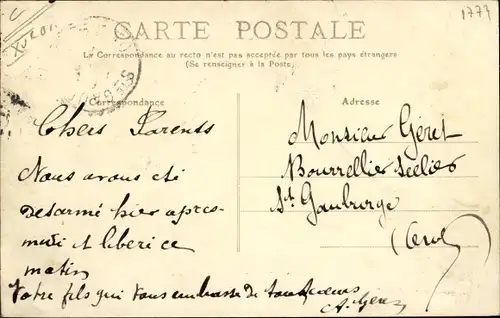 1777
CARTE POSTALE
La Correspondance au recto n'est pas acceptée par tous les pays étrangers
(Se renseigner à la Poste.)
Correspondance
Chers Parents
Nous avons été
desarmé hier apres-
midi et liberé ce
matin
Votre fils qui vous embrasse de
Adresse
Monsieur Géret
Bourrellier Sellier
St Gauburge
(Orne)